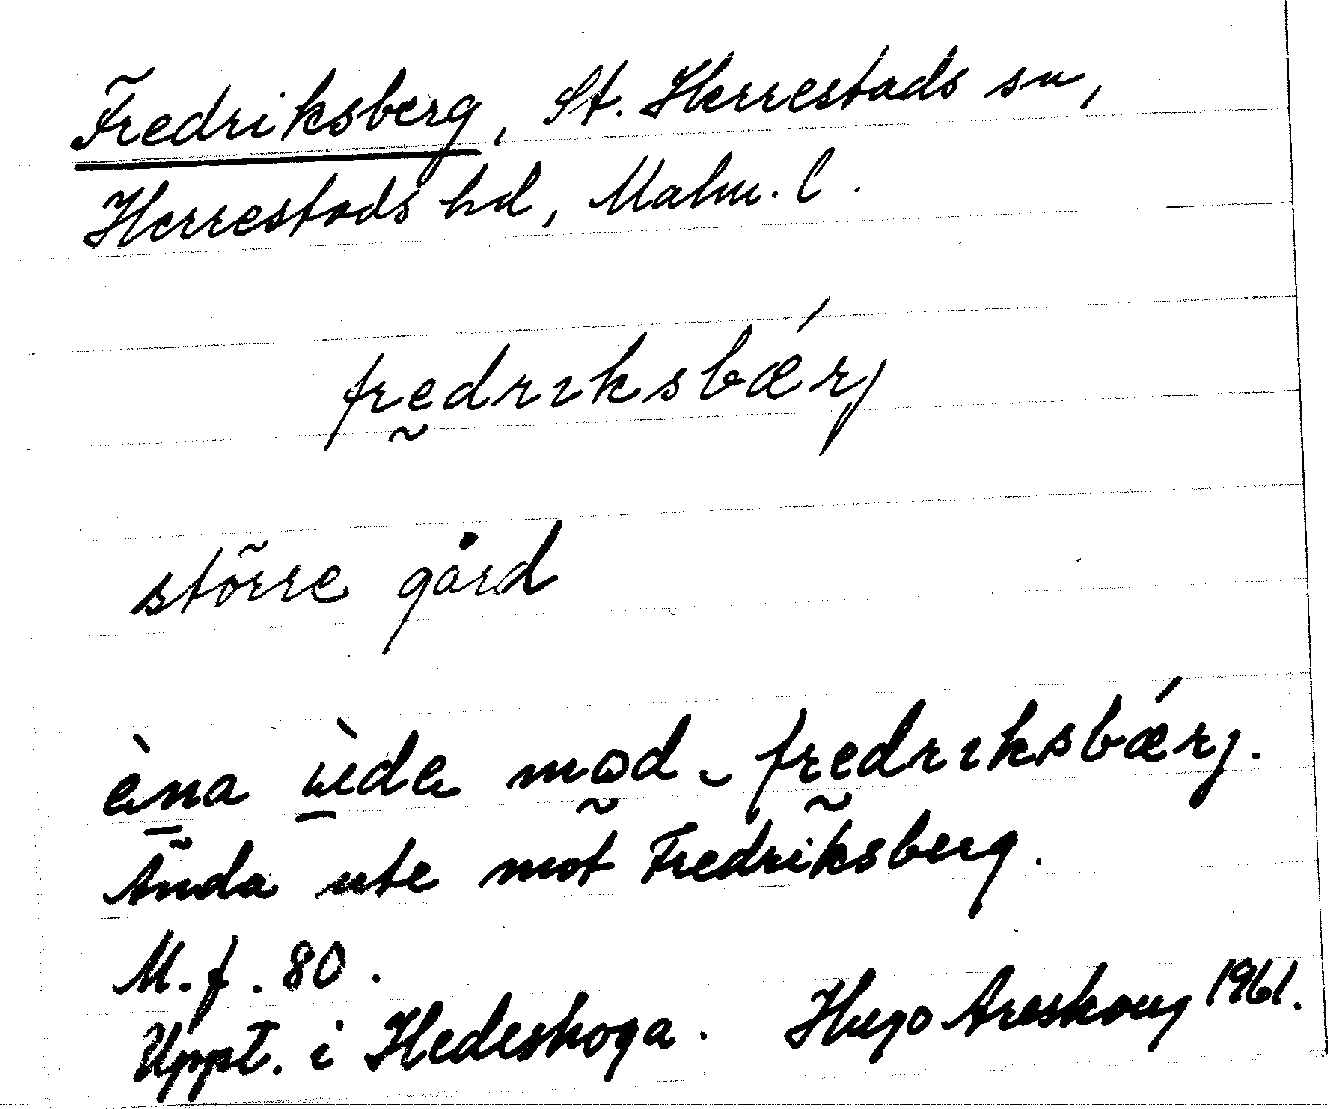 Fredriksberg, St. Herrestads sn,
Herrestads hd, Malm. l.
frḛdrıksbǽrj
större gård
èṉa ùde mo̰d frḛdrıksbǽrj.
Ända ute mot Fredriksberg.
M. f. 80.
Uppt. i Hedeskoga. Hugo Areskoug 1961.